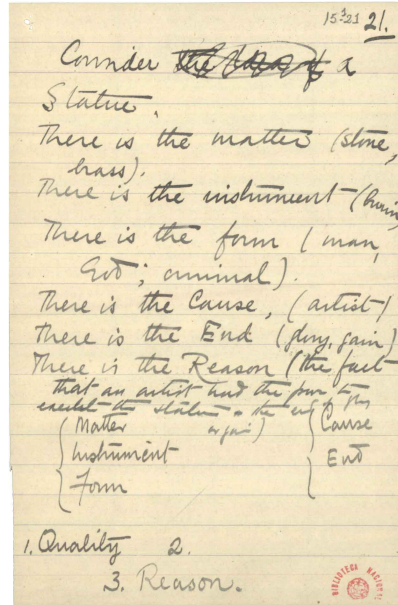 21.
Consider the idea of a
Statue.
There is the matter (stone,
brass).
There is the instrument (burin)
There is the form (man,
God; criminal).
There is the Cause, (artist)
There is the End (glory, gain)
There is the Reason (the fact
that an artist had the power to
execute the statue the end glory
or gain)
Matter Cause
Instrument End
Form
1. Quality 2.
3. Reason.
BIBLIOTECA NACIONAL